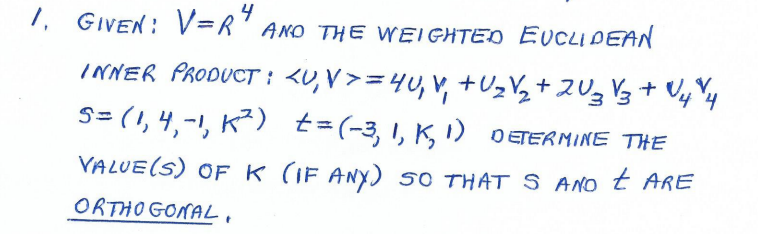 1. GIVEN: V=R⁴ AND THE WEIGHTED EUCLIDEAN
INNER PRODUCT: <U,V>=4U₁V₁+U₂V₂+2U₃V₃+U₄V₄
S=(1,4,-1,K²) t=(-3,1,K,1) DETERMINE THE
VALUE(S) OF K (IF ANY) SO THAT S AND t ARE
ORTHOGONAL.